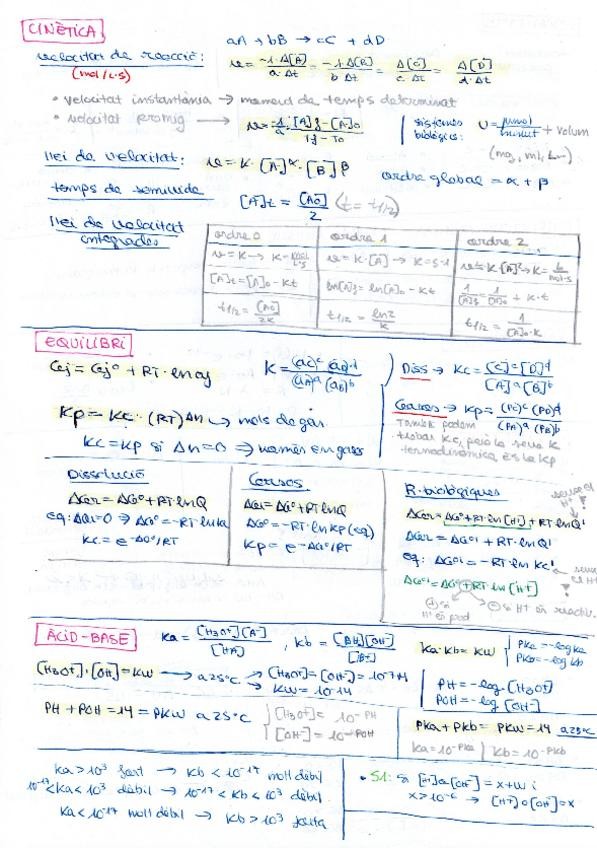 CINÈTICA
aA + bB → cC + dD
velocitat de reacció: v = -1·Δ[A] / a·Δt = -1·Δ[B] / b·Δt = Δ[C] / c·Δt = Δ[D] / d·Δt
(mol/L·s)
• velocitat instantània → moment de temps determinat
• velocitat promig → v = -1/a · [A]f - [A]o / Tf - To
sistemes biològics: U = μmol / minut + volum
(mg, mL, L...)
llei de velocitat: v = K · [A]^α · [B]^β ordre global = α + β
temps de semivida [A]t = [Ao] / 2 (t = t1/2)
llei de velocitat integrades
ordre 0 ordre 1 ordre 2
v = K → K = mol / L·s v = K·[A] → K = s-1 v = K·[A]² → K = L / mol·s
[A]t = [A]o - Kt ln[A]f = ln[A]o - Kt 1/[A]f = 1/[A]o + K·t
t1/2 = [Ao] / 2K t1/2 = ln2 / K t1/2 = 1 / [A]o·K
EQUILIBRI
Gj = Gjº + RT·ln aj K = (ac)^c (ad)^d / (aA)^a (aB)^b Diss → Kc = [C]^c [D]^d / [A]^a [B]^b
Kp = Kc · (RT)^Δn → mols de gas Gasos → Kp = (Pc)^c (PD)^d / (PA)^a (PB)^b
Kc = Kp si Δn = 0 ⇒ només en gasos
També podem trobar Kc, però la seua K termodinàmica és la Kp
Dissolució
ΔGr = ΔGº + RT·lnQ
eq: ΔG = 0 ⇒ ΔGº = -RT·lnKc
Kc = e^-ΔGº/RT
Gasos
ΔGr = ΔGº + RT·lnQ
ΔGº = -RT·lnKp (eq)
Kp = e^-ΔGº/RT
R. biològiques
ΔGr = ΔGº + RT·ln[H+] + RT·lnQ'
ΔGr = ΔGº' + RT·lnQ'
eq: ΔGº' = -RT·lnKc'
ΔGº' = ΔGº + RT·ln[H+]
(+) si H+ en prod
(-) si H+ en reactiu.
ÀCID-BASE
Ka = [H3O+][A-] / [HA] , Kb = [BH][OH-] / [B+] Ka·Kb = Kw pKa = -log Ka
pKb = -log Kb
[H3O+]·[OH-] = Kw → a 25ºC → [H3O+] = [OH-] = 10^-7 M
Kw = 10^-14
PH = -log [H3O+]
POH = -log [OH-]
PH + POH = 14 = PKw a 25ºC [H3O+] = 10^-PH
[OH-] = 10^-POH
PKa + PKb = PKw = 14 a 25ºC
Ka = 10^-PKa Kb = 10^-PKb
Ka > 10³ fort → Kb < 10^-17 molt dèbil
10^-17 < Ka < 10³ dèbil → 10^-17 < Kb < 10³ dèbil
Ka < 10^-17 molt dèbil → Kb > 10³ forta
• Si: Si [H+] o [OH-] = x + w i
x > 10^-6 → [H+] o [OH-] = x